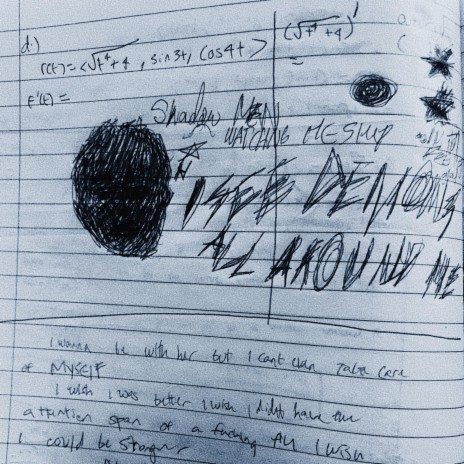 d.)
r(t) = <√t⁴+4 , sin3t, cos4t > (√t⁴+4)'
r'(t) = =
Shadow MEN
WATCHING ME SLEEP
I SEE DEMONS
ALL AROUND ME
I wanna be with her but I cant even take care
of MYSELF
I wish I was better I wish I didnt have the
attention span of a fucking I wish
I could be stronger